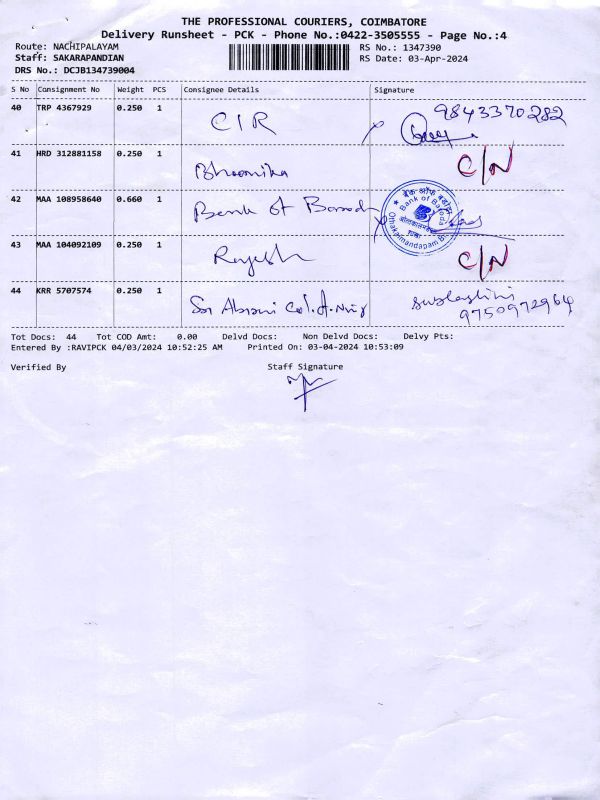 THE PROFESSIONAL COURIERS, COIMBATORE
Delivery Runsheet - PCK - Phone No.:0422-3505555 - Page No.:4
Route: NACHIPALAYAM
Staff: SAKARAPANDIAN
DRS No.: DCJB134739004
RS No.: 1347390
RS Date: 03-Apr-2024
S No Consignment No Weight PCS Consignee Details Signature
40 TRP 4367929 0.250 1 CIR 9843370282
41 HRD 312881158 0.250 1 Bhoomika C/N
42 MAA 108958640 0.660 1 Bank of Baroda
बैंक ऑफ़ बड़ौदा
Bank of Baroda
43 MAA 104092109 0.250 1 Rajesh C/N
44 KRR 5707574 0.250 1 Col. of Nursing
9750972964
Tot Docs: 44 Tot COD Amt: 0.00 Delvd Docs: Non Delvd Docs: Delvy Pts:
Entered By :RAVIPCK 04/03/2024 10:52:25 AM Printed On: 03-04-2024 10:53:09
Verified By Staff Signature